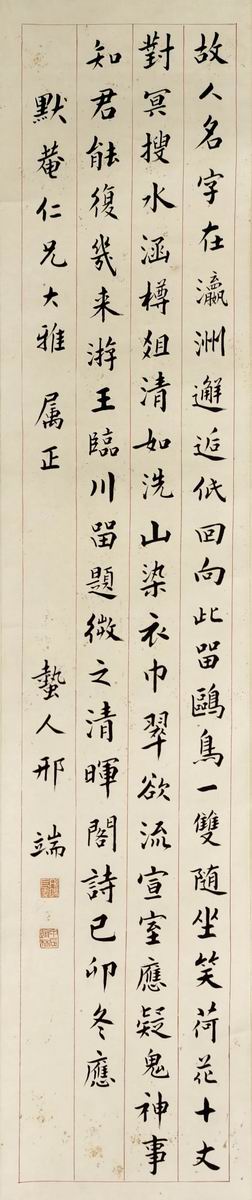 故人名字在瀛洲邂逅低回向此留鷗鳥一雙隨坐笑荷花十丈
對冥搜水涵樽俎清如洗山染衣巾翠欲流宣室應疑鬼神事
知君能復幾来游王臨川留題微之清暉閣詩己卯冬應
默菴仁兄大雅屬正
蟄人邢端